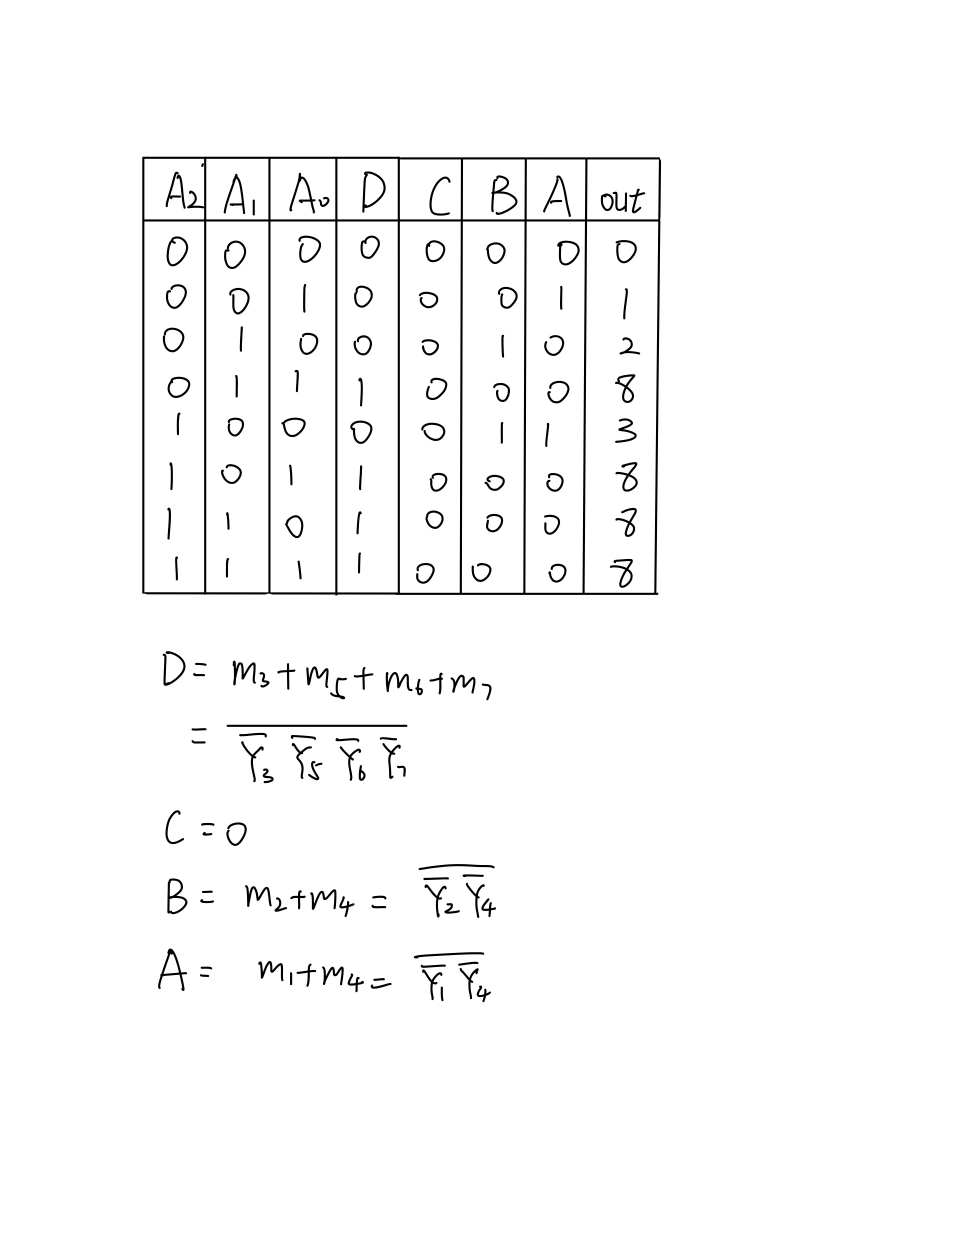 A₂ A₁ A₀ D C B A out
0 0 0 0 0 0 0 0
0 0 1 0 0 0 1 1
0 1 0 0 0 1 0 2
0 1 1 1 0 0 0 8
1 0 0 0 0 1 1 3
1 0 1 1 0 0 0 8
1 1 0 1 0 0 0 8
1 1 1 1 0 0 0 8
D = m₃ + m₅ + m₆ + m₇
= \overline{\overline{Y}₃ \overline{Y}₅ \overline{Y}₆ \overline{Y}₇}
C = 0
B = m₂ + m₄ = \overline{\overline{Y}₂ \overline{Y}₄}
A = m₁ + m₄ = \overline{\overline{Y}₁ \overline{Y}₄}